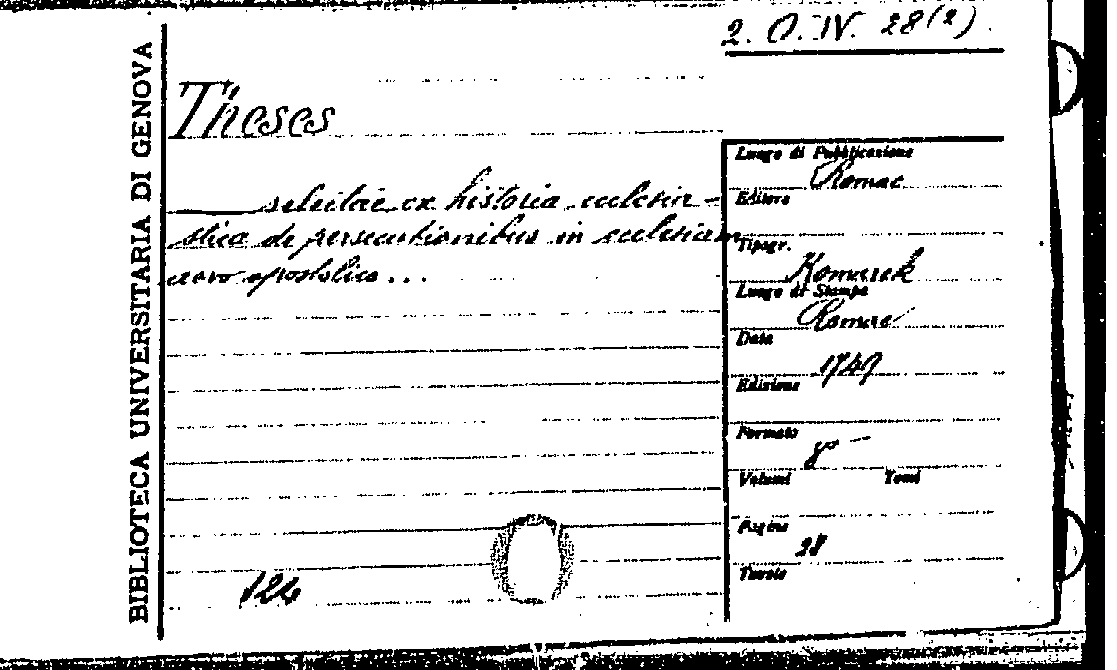 2. O. IV. 28(2).
BIBLIOTECA UNIVERSITARIA DI GENOVA
Theses
selectae ex historia ecclesia-
stica de persecutionibus in ecclesiam
aevo apostolico...
124
Luogo di Pubblicazione
Romae
Editore
Tipogr.
Komarek
Luogo di Stampa
Romae
Data
1749
Edizione
Formato
8°
Volumi Tomi
Pagine
28
Tavole